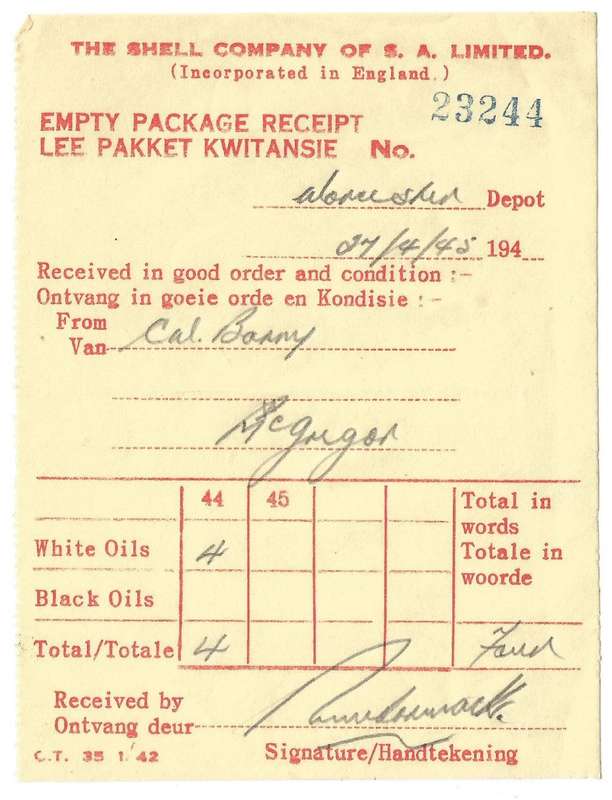 THE SHELL COMPANY OF S. A. LIMITED.
(Incorporated in England.)
23244
EMPTY PACKAGE RECEIPT
LEE PAKKET KWITANSIE No.
Worcester Depot
27/4/45 194
Received in good order and condition :-
Ontvang in goeie orde en Kondisie :-
From
Van Cal. Barry
McGregor
44 45 Total in
words
White Oils 4 Totale in
woorde
Black Oils
Total/Totale 4 Four
Received by
Ontvang deur
C.T. 35 1/42 Signature/Handtekening